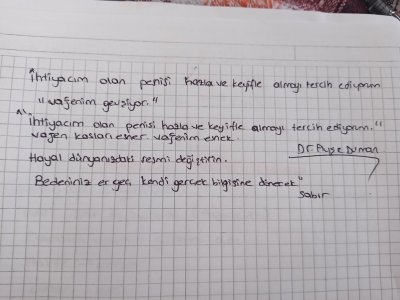 "ihtiyacım olan penisi hazla ve keyifle almayı tercih ediyorum
"vajenim gevşiyor."
"ihtiyacım olan penisi hazla ve keyifle almayı tercih ediyorum."
vajen kasları esner. vajenim esnek.
Hayal dünyanızdaki resmi değiştirin.
Dr. Ayşe Duman
Bedeniniz er geç, kendi gerçek bilgisine dönecek"
sabır